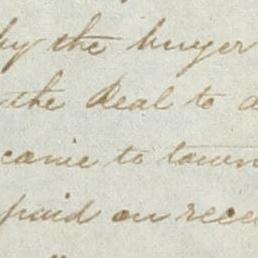 by the buyer
the deal to
came to town
paid on rece